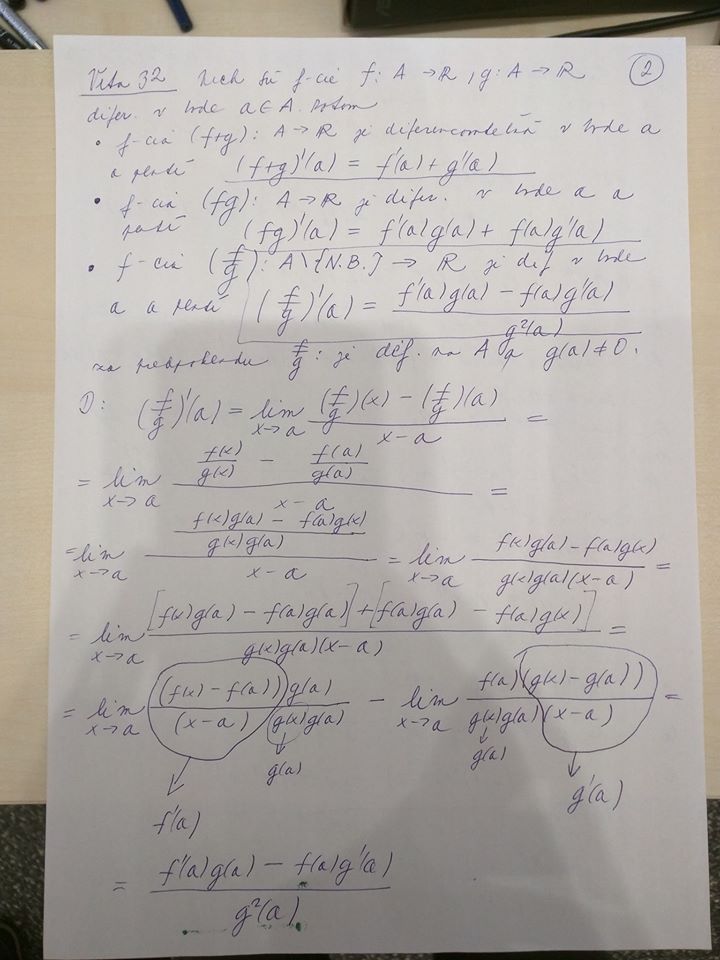 Veta 32 Nech sú f-cie f: A → ℝ, g: A → ℝ ②
difer. v bode a ∈ A. Potom
• f-cia (f+g): A → ℝ je diferencovateľná v bode a
a platí (f+g)'(a) = f'(a) + g'(a)
• f-cia (fg): A → ℝ je difer. v bode a a
platí (fg)'(a) = f'(a)g(a) + f(a)g'(a)
• f-cia (f/g): A \ {N.B.} → ℝ je dif v bode
a a platí (f/g)'(a) = (f'(a)g(a) − f(a)g'(a)) / g²(a)
za predpokladu f/g : je def. na A a g(a) ≠ 0.
D: (f/g)'(a) = lim x→a ((f/g)(x) − (f/g)(a)) / (x−a) =
= lim x→a (f(x)/g(x) − f(a)/g(a)) / (x−a) =
= lim x→a ((f(x)g(a) − f(a)g(x)) / (g(x)g(a))) / (x−a) = lim x→a (f(x)g(a) − f(a)g(x)) / (g(x)g(a)(x−a)) =
= lim x→a ([f(x)g(a) − f(a)g(a)] + [f(a)g(a) − f(a)g(x)]) / (g(x)g(a)(x−a)) =
= lim x→a ((f(x) − f(a))g(a)) / ((x−a) g(x)g(a)) − lim x→a (f(a)(g(x) − g(a))) / (g(x)g(a)(x−a)) =
↓ g(a) ↓ g(a)
↓ f'(a) ↓ g'(a)
= (f'(a)g(a) − f(a)g'(a)) / g²(a)